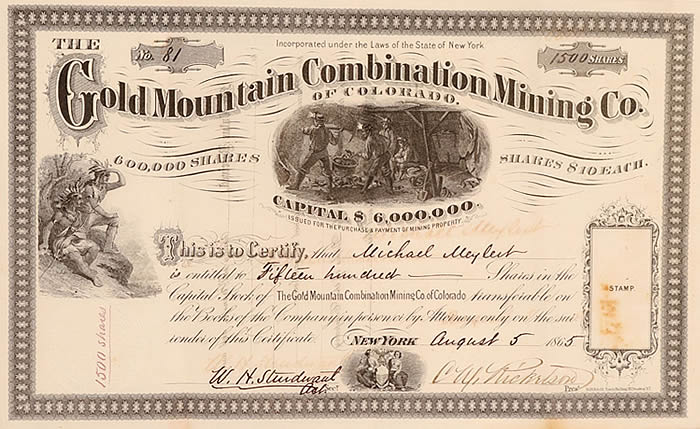 No. 81
Incorporated under the Laws of the State of New York
1500 SHARES
THE
Gold Mountain Combination Mining Co.
OF COLORADO.
600,000 SHARES
SHARES $10 EACH.
CAPITAL $ 6,000,000.
ISSUED FOR THE PURCHASE & PAYMENT OF MINING PROPERTY
This is to Certify, that Michael Meylert
is entitled to Fifteen hundred Shares in the
Capital Stock of The Gold Mountain Combination Mining Co. of Colorado transferable on
the Books of the Company in person or by Attorney only on the sur
render of this Certificate.
STAMP
1500 shares
NEW YORK August 5 1865
W. H.
Sec'y
Pres't